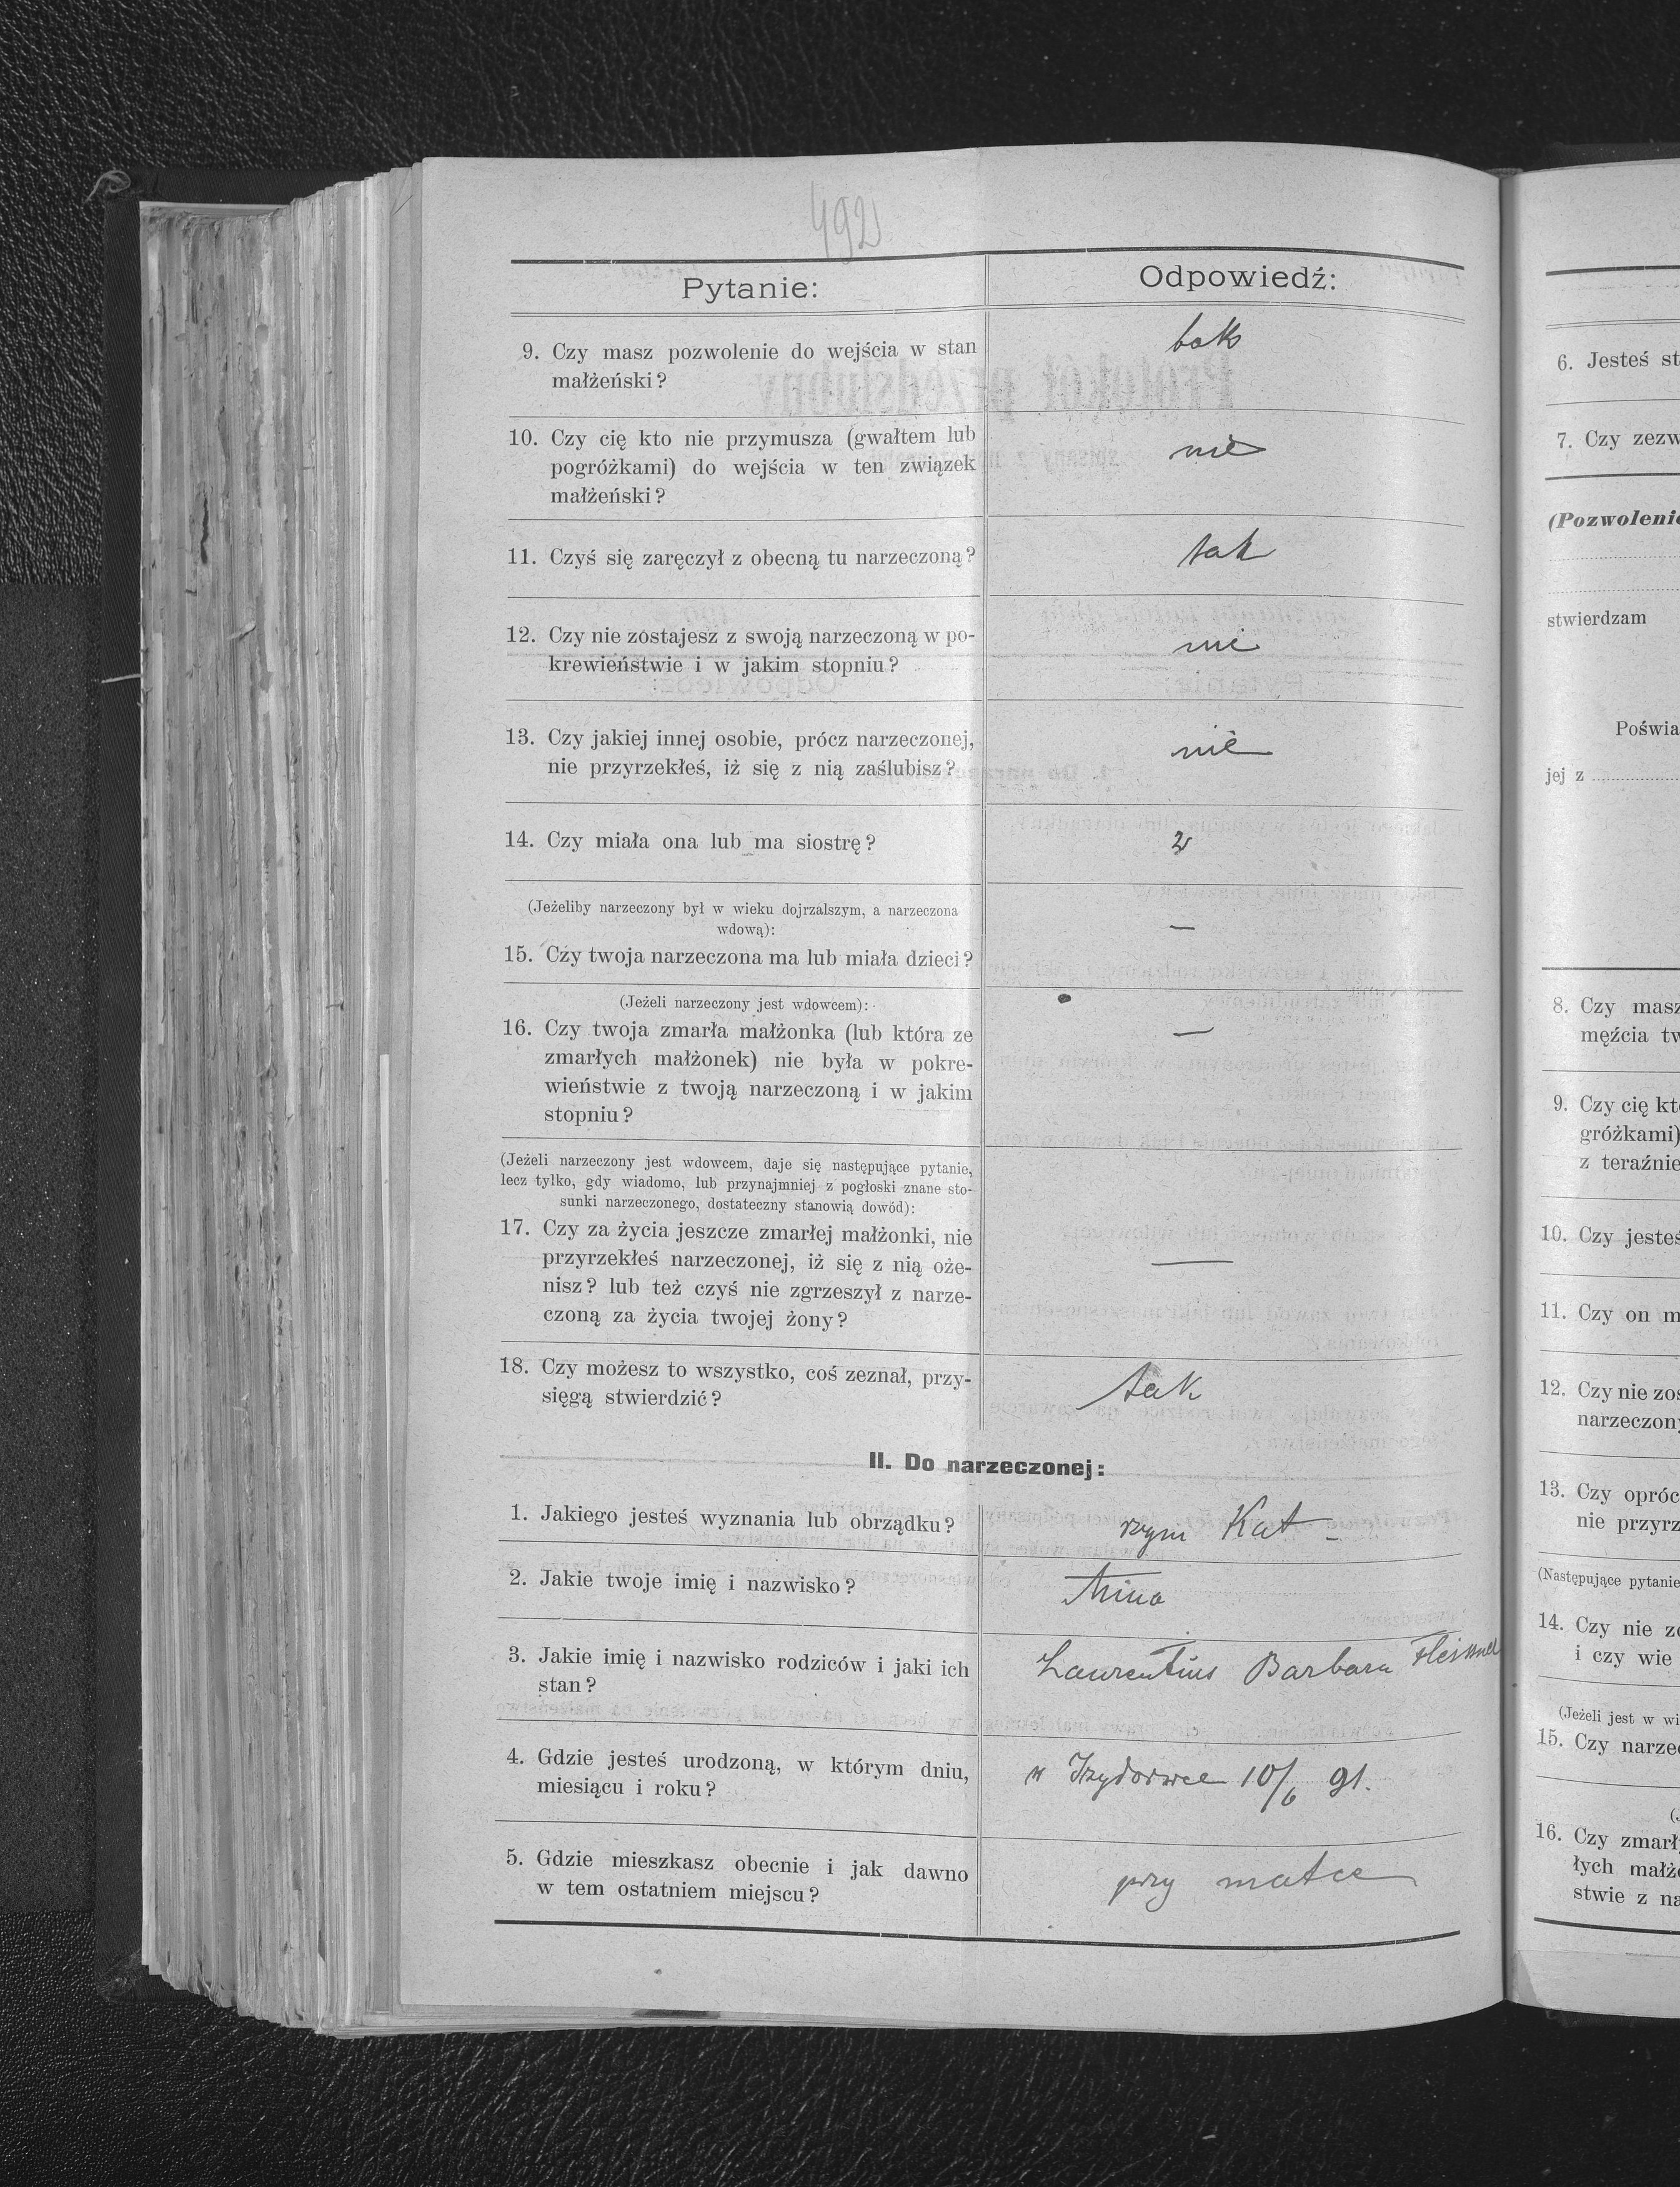 492
Pytanie:
Odpowiedź:
9. Czy masz pozwolenie do wejścia w stan
małżeński?
tak
10. Czy cię kto nie przymusza (gwałtem lub
pogróżkami) do wejścia w ten związek
małżeński?
nie
11. Czyś się zaręczył z obecną tu narzeczoną?
tak
12. Czy nie zostajesz z swoją narzeczoną w po-
krewieństwie i w jakim stopniu?
nie
13. Czy jakiej innej osobie, prócz narzeczonej,
nie przyrzekłeś, iż się z nią zaślubisz?
nie
14. Czy miała ona lub ma siostrę?
2
(Jeżeliby narzeczony był w wieku dojrzalszym, a narzeczona
wdową):
15. Czy twoja narzeczona ma lub miała dzieci?
—
(Jeżeli narzeczony jest wdowcem):
16. Czy twoja zmarła małżonka (lub która ze
zmarłych małżonek) nie była w pokre-
wieństwie z twoją narzeczoną i w jakim
stopniu?
—
(Jeżeli narzeczony jest wdowcem, daje się następujące pytanie,
lecz tylko, gdy wiadomo, lub przynajmniej z pogłoski znane sto-
sunki narzeczonego, dostateczny stanowią dowód):
17. Czy za życia jeszcze zmarłej małżonki, nie
przyrzekłeś narzeczonej, iż się z nią oże-
nisz? lub też czyś nie zgrzeszył z narze-
czoną za życia twojej żony?
—
18. Czy możesz to wszystko, coś zeznał, przy-
sięgą stwierdzić?
tak
II. Do narzeczonej:
1. Jakiego jesteś wyznania lub obrządku?
rzym Kat -
2. Jakie twoje imię i nazwisko?
Anna
3. Jakie imię i nazwisko rodziców i jaki ich
stan?
Laurentius Barbara
4. Gdzie jesteś urodzoną, w którym dniu,
miesiącu i roku?
w Izydorwce 10/6 91.
5. Gdzie mieszkasz obecnie i jak dawno
w tem ostatniem miejscu?
przy matce
6. Jesteś st
7. Czy zezw
(Pozwoleni
stwierdzam
Poświa
jej z
8. Czy masz
męźcia tw
9. Czy cię kt
gróżkami)
z teraźnie
10. Czy jesteś
11. Czy on m
12. Czy nie zos
narzeczon
13. Czy opróc
nie przyrz
(Następujące pytanie
14. Czy nie z
i czy wie
(Jeżeli jest w wi
15. Czy narze
16. Czy zmarł
łych małż
stwie z na